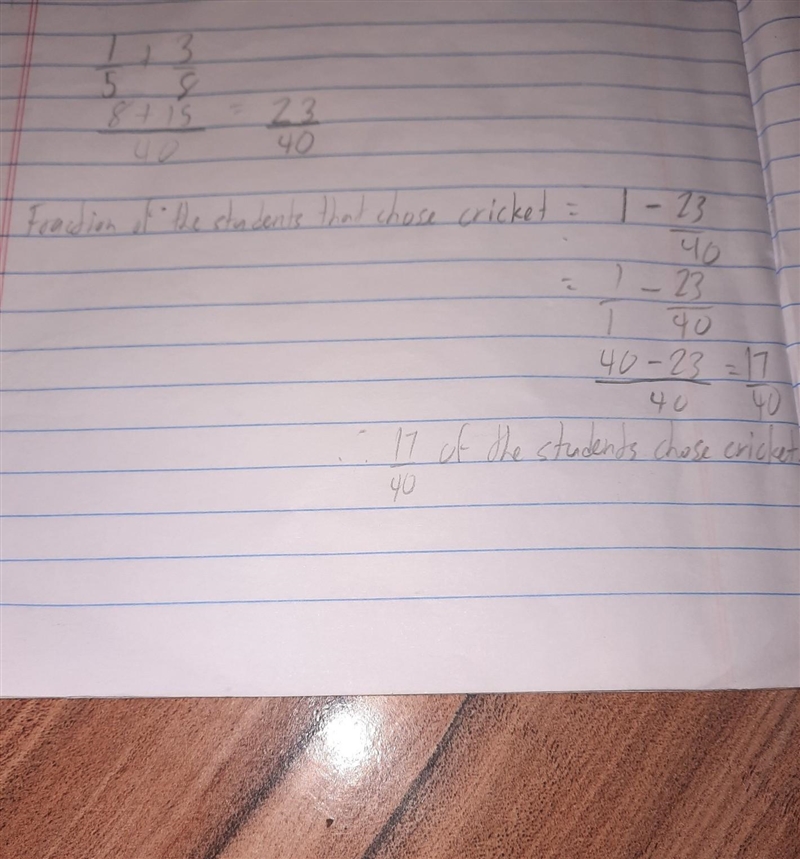 1/5 + 3/8
8+15/40 = 23/40
Fraction of the students that chose cricket = 1 - 23/40
= 1/1 - 23/40
40-23/40 = 17/40
∴ 17/40 of the students chose cricket